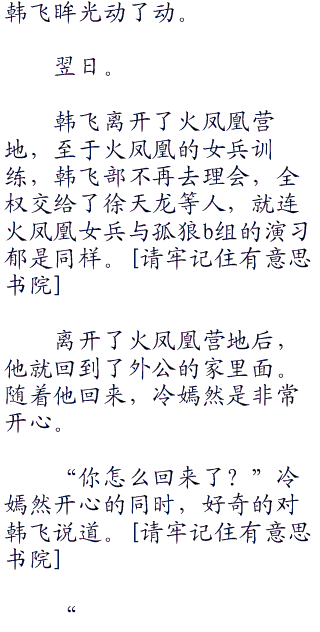 韩飞眸光动了动。
翌日。
韩飞离开了火凤凰营
地，至于火凤凰的女兵训
练，韩飞部不再去理会，全
权交给了徐天龙等人，就连
火凤凰女兵与孤狼b组的演习
郁是同样。[请牢记住有意思
书院]
离开了火凤凰营地后，
他就回到了外公的家里面。
随着他回来，冷嫣然是非常
开心。
“你怎么回来了？”冷
嫣然开心的同时，好奇的对
韩飞说道。[请牢记住有意思
书院]
“